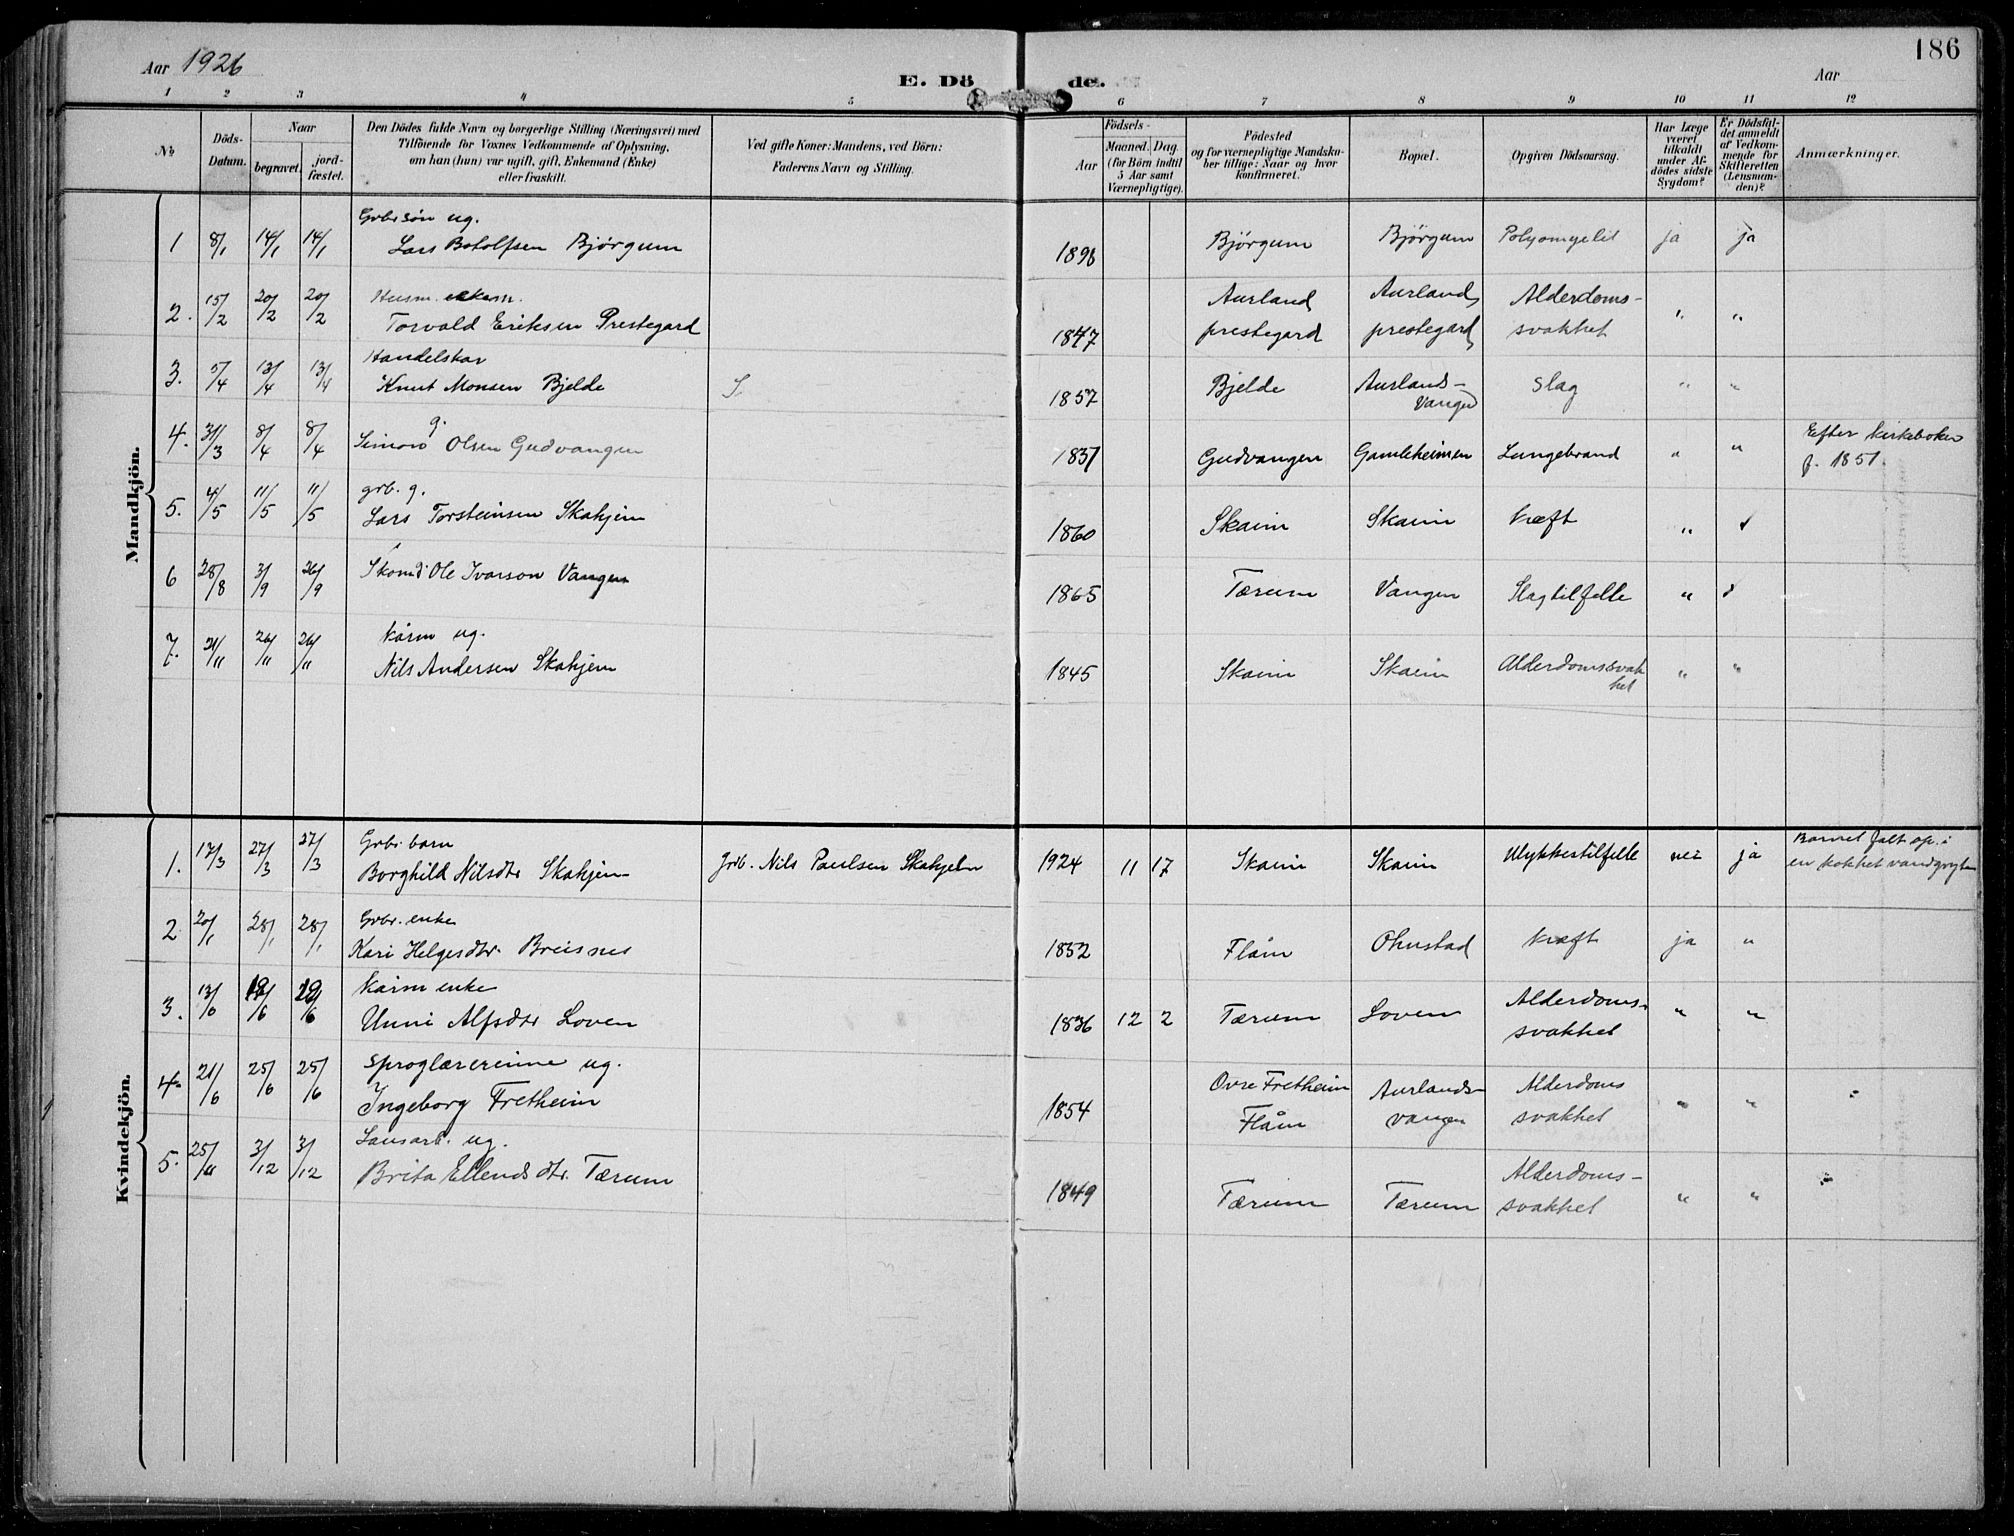 186
Aar 1926
E. Döde.
Aar
1 2 3 4 5 6 7 8 9 10 11 12
No
Döds-Datum.
Naar
begravet.
jord-fæstet.
Den Dödes fulde Navn og borgerlige Stilling (Næringsvei) med
Tilföiende for Voxnes Vedkommende af Oplysning,
om han (hun) var ugift, gift, Enkemand (Enke)
eller fraskilt.
Ved gifte Koner: Mandens, ved Börn:
Faderens Navn og Stilling.
Födsels-
Aar
Maaned. Dag.
(for Börn indtil
5 Aar samt
Værnepligtige).
Födested
og for værnepligtige Mandsku-
ber tillige: Naar og hvor
konfirmeret.
Bopæl.
Opgiven Dödsaarsag.
Har Læge
været
tilkaldt
under Af-
dödes sidste
Sygdom?
Er Dödsfal-
det anmeldt
af Vedkom-
mende for
Skifteretten
(Lensman-
den)?
Anmærkninger.
Mandkjön.
Grbr søn ug.
1 8/1 14/1 14/1 Lars Botolfsen Bjørgum 1898 Bjørgum Bjørgum Polyomyelit ja ja
Husm. enkem.
2. 15/2 20/2 20/2 Torvald Eriksen Prestegard 1847 Aurland prestegard Aurland prestegard Alderdoms-svakhet " "
Handelskar
3. 5/4 13/4 13/4 Knut Monsen Bjelde S. 1857 Bjelde Aurlands-Vangen Slag " "
g.
4. 31/3 8/4 8/4 Simon Olsen Gudvangen 1837 Gudvangen Gamleheimen Lungebrand " " Efter kirkeboken
f. 1851.
grb. g.
5. 4/5 11/5 11/5 Lars Torsteinsen Skahjem 1860 Skaim Skaim Kræft "
6 28/8 3/9 26/9 Skom. Ole Ivarson Vangen 1865 Tærum Vangen Slagtilfelle "
Kårm ug.
7. 21/11 26/11 26/11 Nils Andersen Skahjem 1845 Skaim Skaim Alderdomssvak-
het " "
Kvindekjön.
Grbr. barn
1. 17/3 27/3 27/3 Borghild Nilsdtr Skahjem Grb. Nils Paulsen Skahjem 1924 11 17 Skaim Skaim Ulykkestilfelle nei ja Barnet falt op. i
en kokhet vandgryte
Grbr. enke
2 20/1 28/1 28/1 Kari Helgesdtr. Breisnes 1852 Flåm Ohnstad Kræft ja "
Kårm enke
3. 13/6 18/6 19/6 Unni Alfsdtr Loven 1836 12 2 Tærum Loven Alderdoms-
svakhet " "
Sproglærerinne ug.
4. 21/6 25/6 25/6 Ingeborg Fretheim 1854 Øvre Fretheim
Flåm Aurlands-
vangen Alderdoms
svakhet " "
Lausarb. ug.
5. 25/11 3/12 3/12 Brita Ellendsdtr. Tærum 1849 Tærum Tærum Alderdoms-
svakhet " "